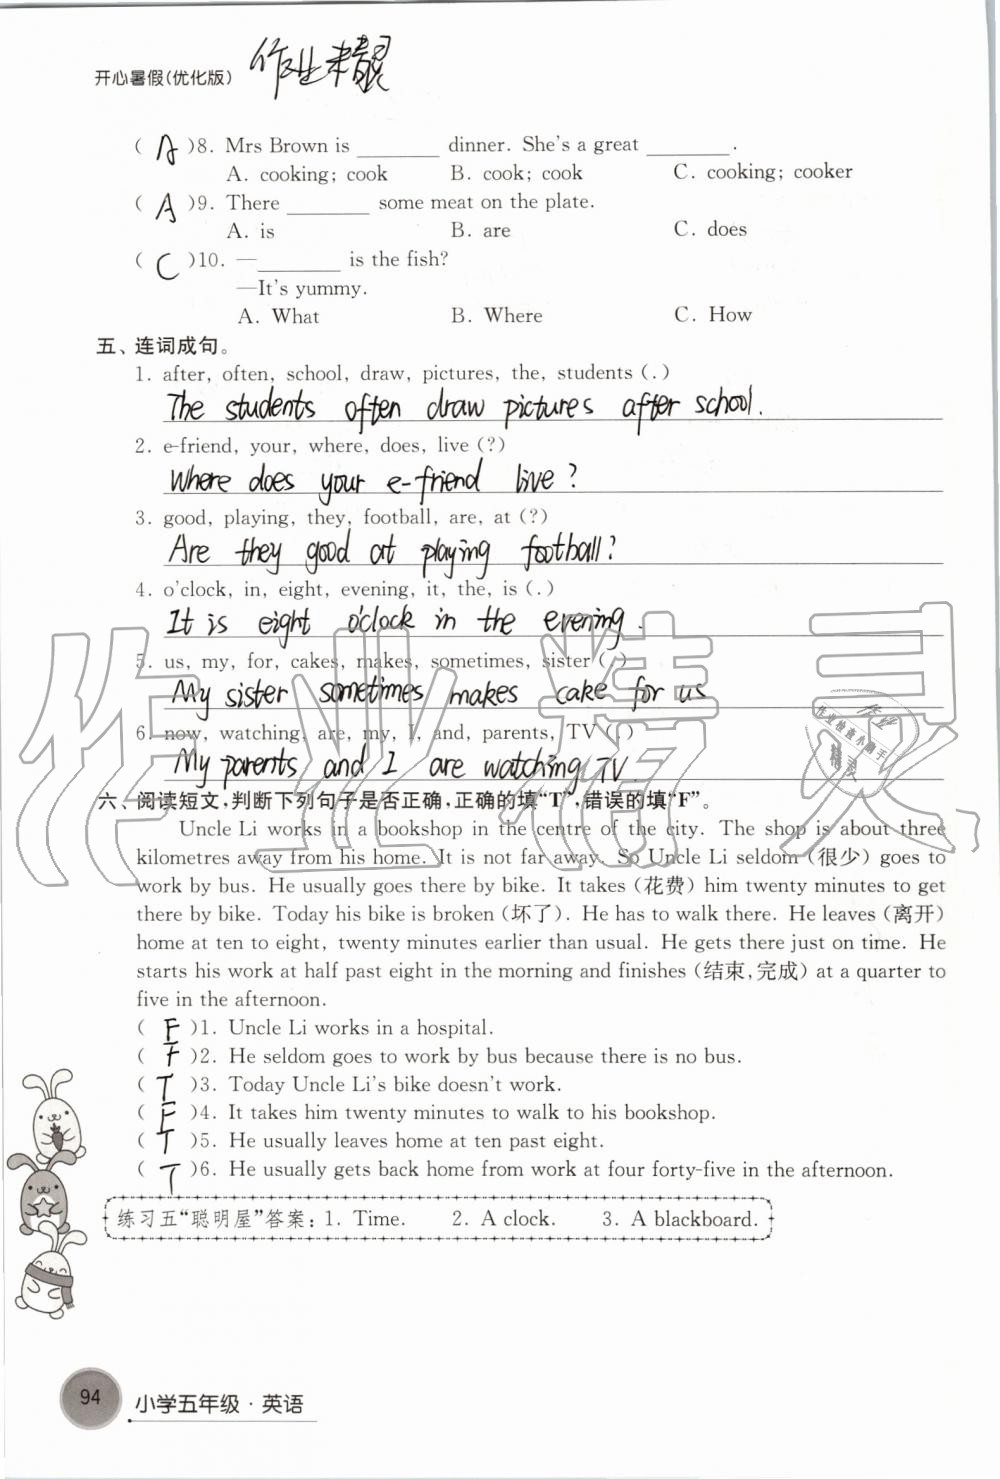 开心暑假(优化版) 作业精灵
( A )8. Mrs Brown is ________ dinner. She's a great ________.
A. cooking; cook B. cook; cook C. cooking; cooker
( A )9. There ________ some meat on the plate.
A. is B. are C. does
( C )10. —________ is the fish?
—It's yummy.
A. What B. Where C. How
五、连词成句。
1. after, often, school, draw, pictures, the, students (.)
The students often draw pictures after school.
2. e-friend, your, where, does, live (?)
Where does your e-friend live?
3. good, playing, they, football, are, at (?)
Are they good at playing football?
4. o'clock, in, eight, evening, it, the, is (.)
It is eight o'clock in the evening.
5. us, my, for, cakes, makes, sometimes, sister (.)
My sister sometimes makes cake for us
6. now, watching, are, my, I, and, parents, TV (.)
My parents and I are watching TV
六、阅读短文,判断下列句子是否正确,正确的填“T”,错误的填“F”。
Uncle Li works in a bookshop in the centre of the city. The shop is about three
kilometres away from his home. It is not far away. So Uncle Li seldom (很少) goes to
work by bus. He usually goes there by bike. It takes (花费) him twenty minutes to get
there by bike. Today his bike is broken (坏了). He has to walk there. He leaves (离开)
home at ten to eight, twenty minutes earlier than usual. He gets there just on time. He
starts his work at half past eight in the morning and finishes (结束,完成) at a quarter to
five in the afternoon.
( F )1. Uncle Li works in a hospital.
( F )2. He seldom goes to work by bus because there is no bus.
( T )3. Today Uncle Li's bike doesn't work.
( F )4. It takes him twenty minutes to walk to his bookshop.
( T )5. He usually leaves home at ten past eight.
( T )6. He usually gets back home from work at four forty-five in the afternoon.
练习五“聪明屋”答案：1. Time. 2. A clock. 3. A blackboard.
94 小学五年级·英语
作业精灵
作业
作业检查小助手
精灵